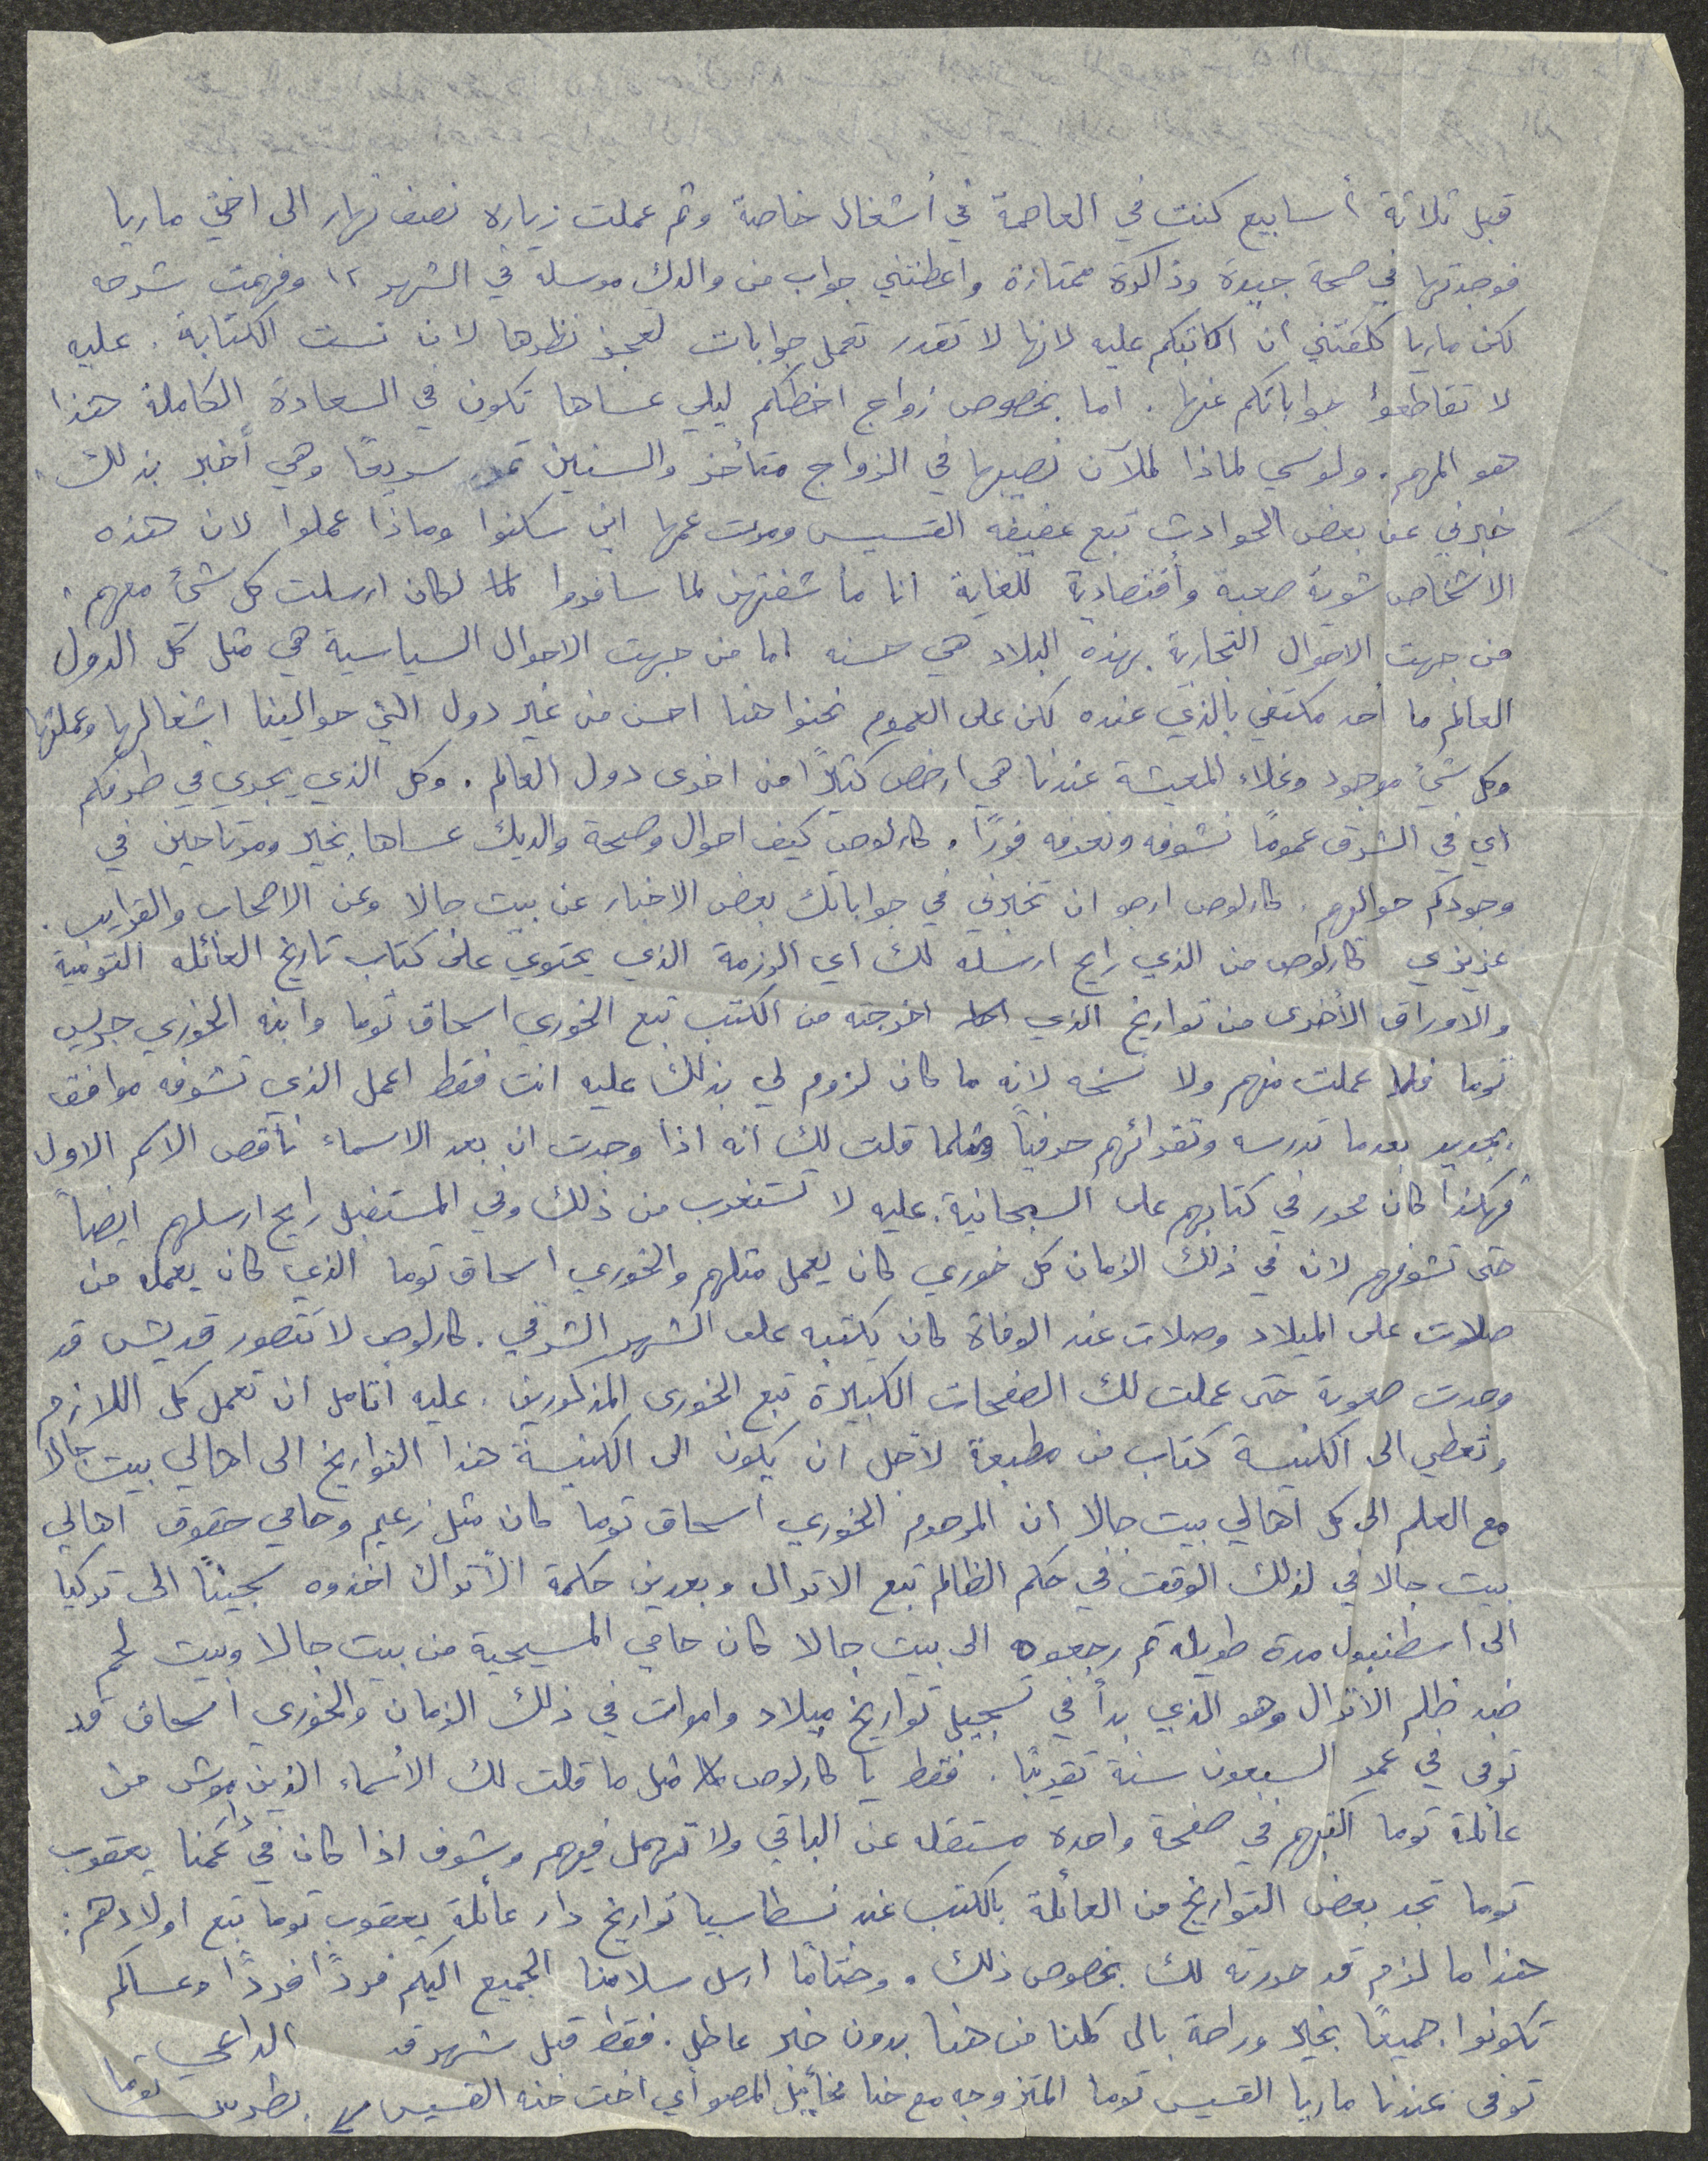 قبل ثلاثة أسابيع كنت في العاصمة في أشغال خاصة وتم عملت زيارة نصف نهار الى اختي ماريا
فوجدتها في صحة جيدة وذاكرة ممتازة واعطتني جواب من والدك مرسله في الشهر ١٢ وفهمت شرحه
لكن ماريا كلفتني أن اكاتبكم عليه لانها لا تقدر تعمل جوابات لعجز نظرها لان نست الكتابة. عليه
لا تقاطعوا جواباتكم عنها. اما بخصوص زواج اختكم ليلي عساها تكون في السعادة الكاملة هذا
هو المهم. ولوسي لماذا للآن نصيبها في الزواج متأخر والسنين تمر سريعًا وهي أخبر بذلك.
خبرني عن بعض الحوادث تبع عفيفه القسيس وموت عمها اين سكنوا وماذا عملوا لان هذه
الاشخاص شوية صعبة وأقتصادية للغاية انا ما شفتهن لما سافروا لكان ارسلت كل شئ معهم.
من جهت الاحوال التجارية بهذه البلاد هي حسنه اما من جهت الاحوال السياسية هي مثل كل الدول
العالم ما أحد مكتفي بالذي عنده لكن على العموم نحنوا هنا احسن من غير دول التي حوالينا اشغالها وعملتها
وكل شئ موجود وغلاء المعيشة عندنا هي ارخص كثيرًا من اخرى دول العالم. وكل الذي يجري في طرفكم
اي في الشرق عمومًا نشوفه ونعرفه فورًا. كارلوص كيف احوال وصحة والديك عساها بخير ومرتاحين في
وجودكم حواليهم. كارلوص ارجو ان تخبرني في جواباتك بعض الاخبار عن بيت جالا وعن الاصحاب والقرايب.
عزيزي كارلوص من الذي رايح ارسله لك اي الرزمة الذي يحتوي على كتاب تاريخ العائله التومية
والاوراق الأخرى من تواريخ الذي اخرجته من الكتب تبع الخوري اسحاق توما وابنه الخوري جريس
توما فلما عملت منهم ولا نسخه لانه ما كان لزوم لي بذلك عليه انت فقط اعمل الذي تشوفه موافق
بجديد بعدما تدرسه وتقرائهم حرفياً ومثلما قلت لك انه اذا وجدت ان بعد الاسماء ناقص الاسم الاول
فهكذا كان محرر في كتابهم على السبحانية. عليه لا تستغرب من ذلك وفي المستقبل رايح ارسلهم ايضاً
حتى تشوفهم لان في ذلك الزمان كل خوري كان يعمل مثلهم والخوري اسحاق توما الذي كان يعمله من
صلات على الميلاد وصلات عند الوفاة كان يكتبه على الشهر الشرقي. كارلوص لا تتصور قديش قد
وجدت صعوبة حتى عملت لك الصفحات الكبيرة تبع الخوري المذكورين. عليه اتامل ان تعمل كل اللازم
وتعطي الى الكنيسة كتاب من مطبعة لاجل ان يكون الى الكنيسة هذا التواريخ الى اهالي بيت جالا
مع العلم الى كل اهالي بيت جالا ان المرحوم الخوري أسحاق توما كان مثل زعيم وحامي حقوق اهالي
بيت جالا في لذلك الوقت في حكم الظالم تبع الاتراك وبعدين حكمة الأتراك اخذوه سجينًا الى تركيا
الى اسطنبول مدة طويله تم رجعوه الى بيت جالا كان حامي المسيحية من بيت جالا وبيت لحم
ضد ظلم الاتراك وهو الذي بدأ في تسجيل تواريخ ميلاد واموات في ذلك الزمان والخوري اسحاق قد
توفى في عمر السبعون سنة تقريبًا. فقط يا كارلوص مثل ما قلت لك الأسماء الذين موش من
عائلة توما اكتبهم في صفحة واحده مستقله عن الباقي ولا تهمل فيهم وشوف اذا كان في دار عمنا يعقوب
توما تجد بعض التواريخ من العائلة بالكتب عند نسطاسيا تواريخ دار عائلة يعقوب توما تبع اولادهم:
هذا ما لزم قد حررته لك بخصوص ذلك. وختامًا ارسل سلامنا الجميع اليكم فردًا فردًا وعساكم
تكونوا جميعًا بخير وراحة بال كلنا من هنا بدون خبر عاطل. فقط قبل شهر قد الداعي
توفى عندنا ماريا القسيس توما المتزوجه مع حنا مخائيل المصو أي اخت حنه القسيس بطرس توما